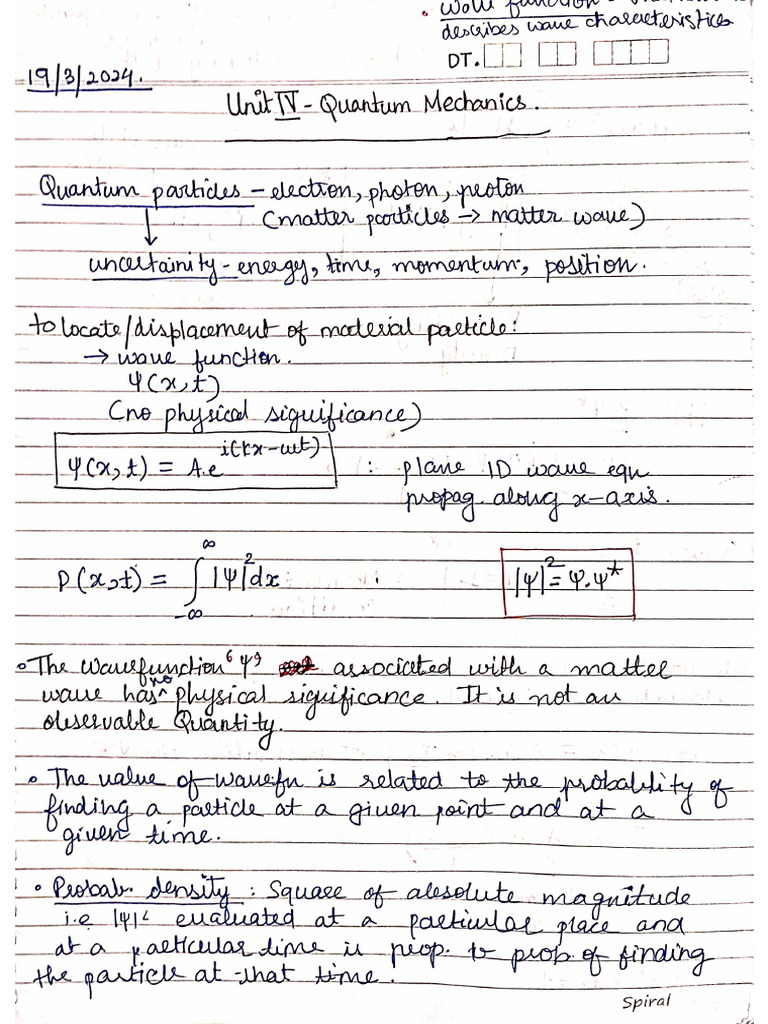 • Wave function
describes wave characteristics
DT.
19/3/2024.
Unit IV - Quantum Mechanics.
Quantum particles - electron, photon, proton
(matter particles → matter wave)
↓
uncertainity - energy, time, momentum, position.
to locate/displacement of material particle:
→ wave function.
Ψ(x,t)
(no physical significance)
Ψ(x,t) = A.e^{i(kx-ωt)} : plane 1D wave eqn
propag. along x-axis.
P(x,t) = ∫_{-∞}^{∞} |Ψ|² dx : |Ψ|² = Ψ.Ψ*
• The wavefunction 'Ψ' associated with a matter
wave has no physical significance. It is not an
observable Quantity.
• The value of wavefn is related to the probability of
finding a particle at a given point and at a
given time.
• Probab. density : Square of absolute magnitude
i.e |Ψ|² evaluated at a particular place and
at a particular time is prop. to prob. of finding
the particle at that time.
Spiral